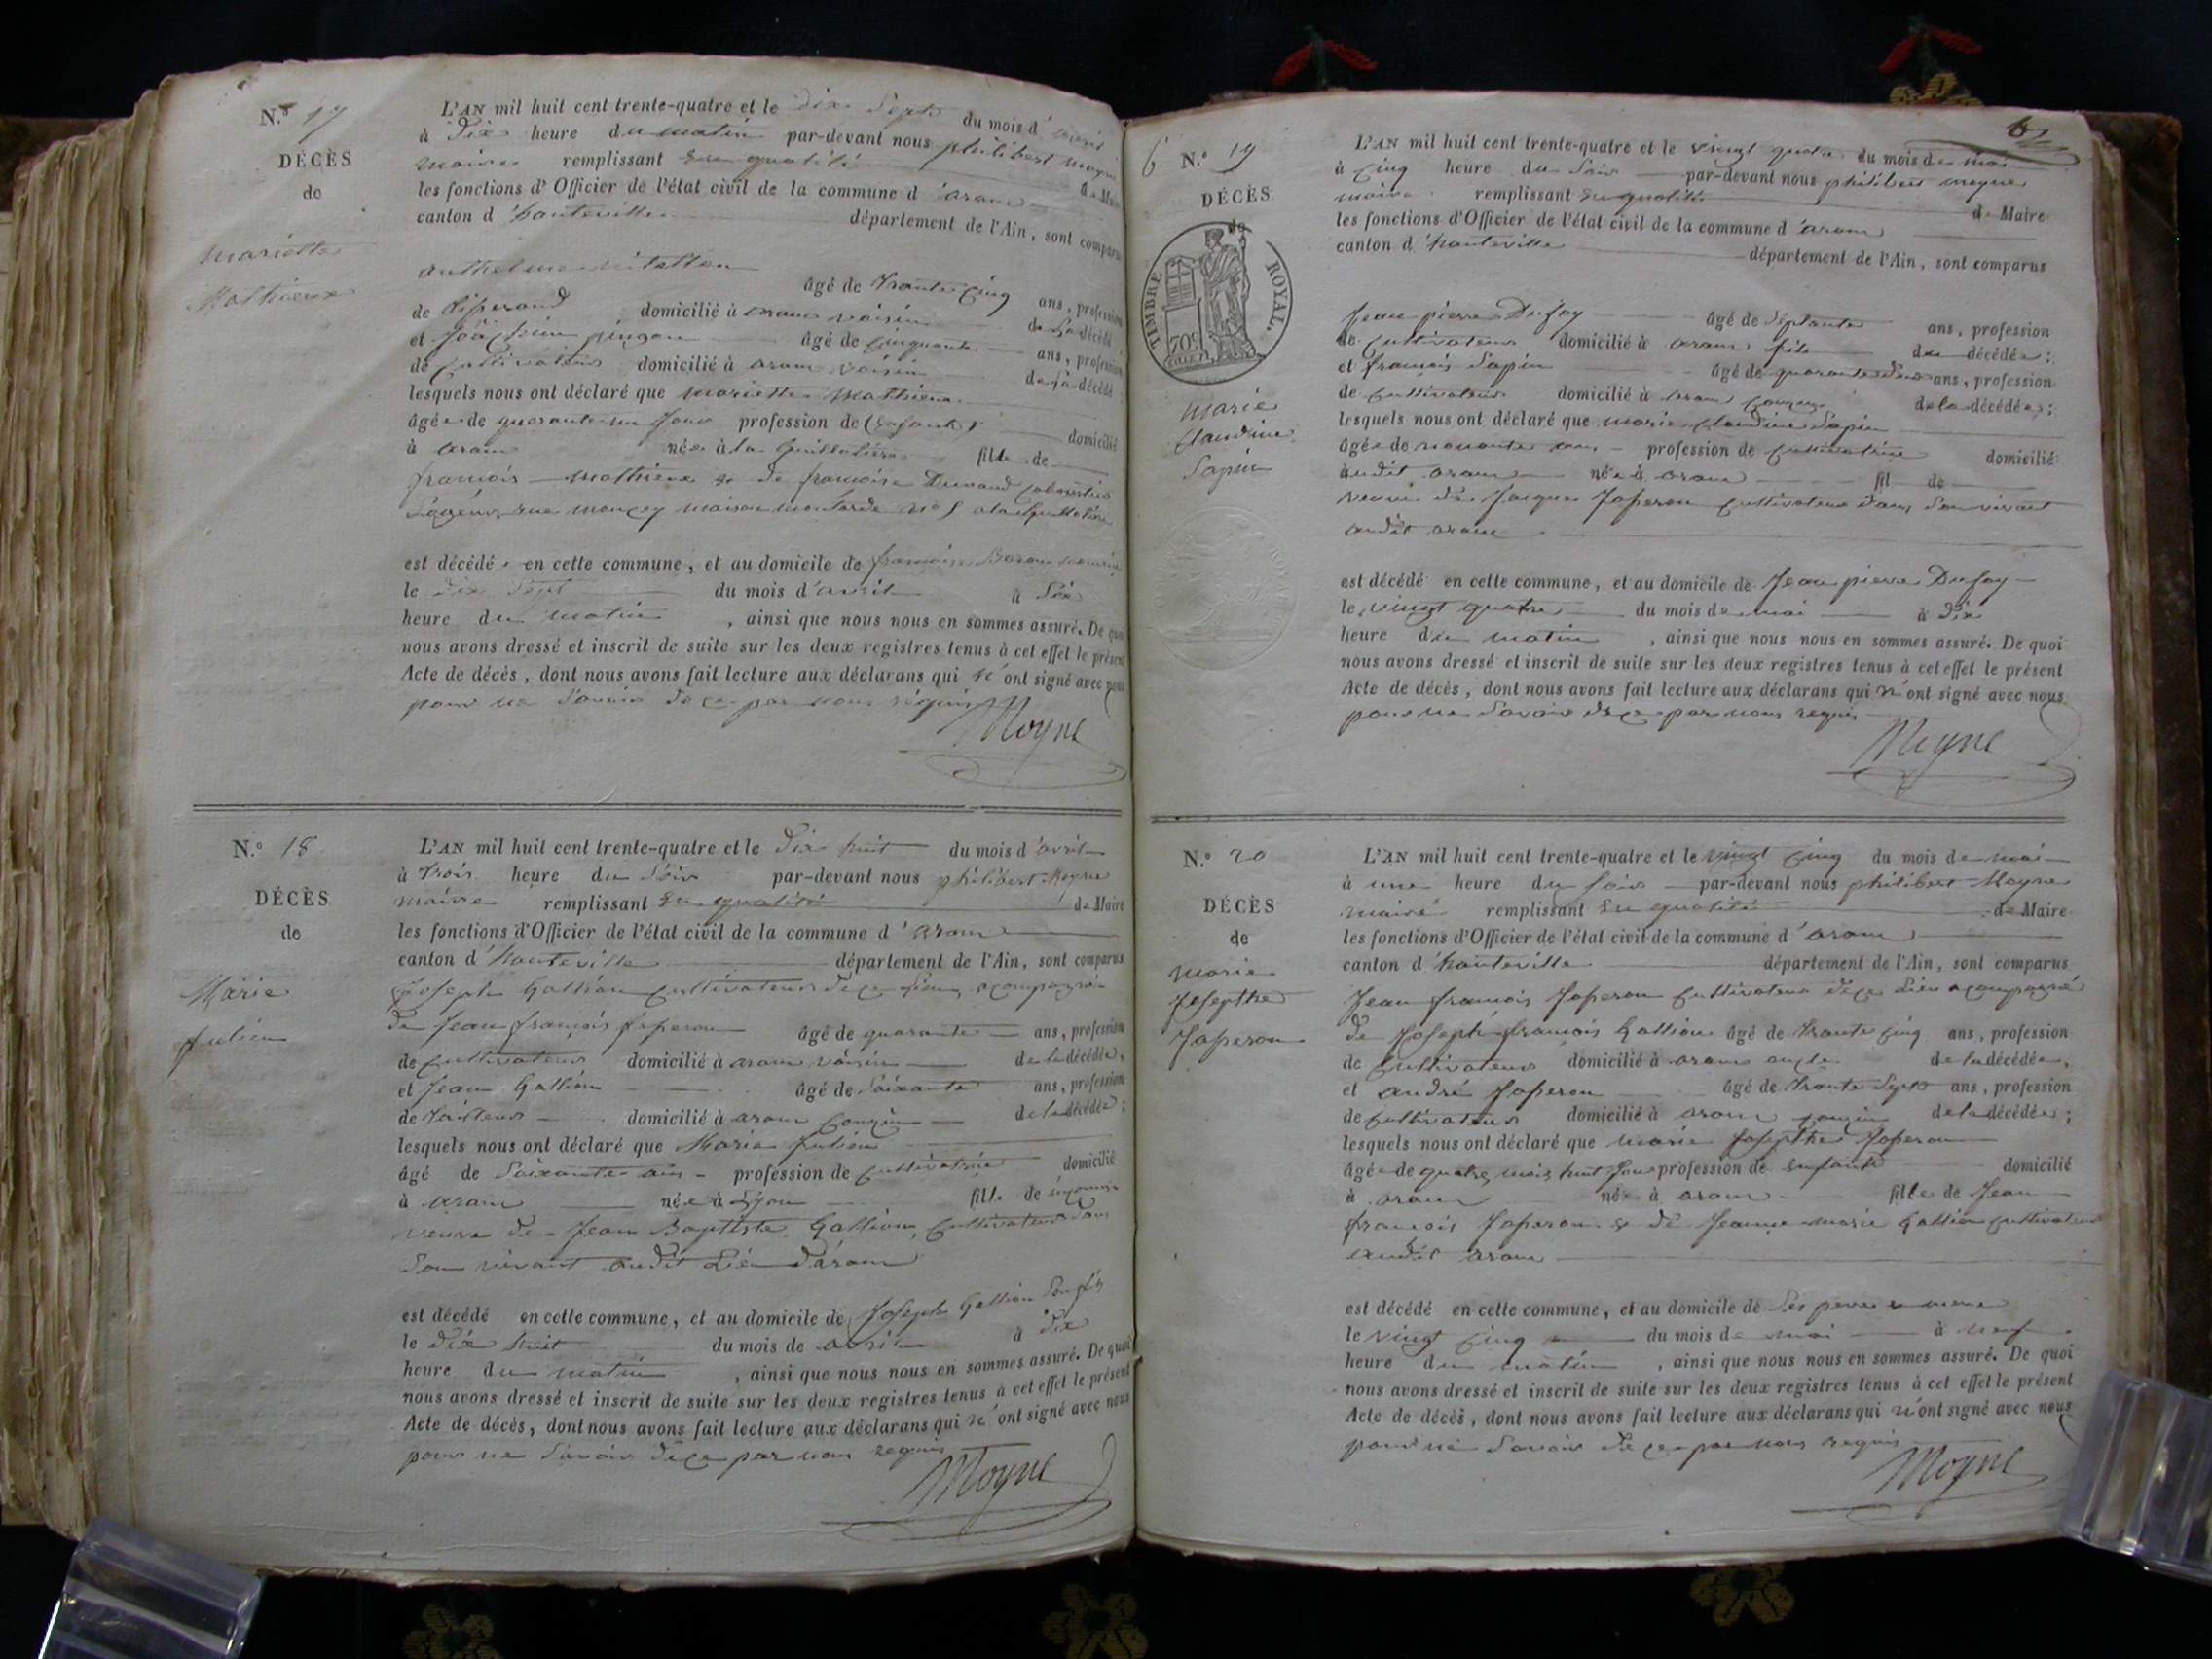 N.º 17
DÉCÈS
de
mariette
Mathieux
L'AN mil huit cent trente-quatre et le dix Sept du mois d'avril
à Dix heure du matin par-devant nous philibert moyne
maire remplissant en qualité de Maire
les fonctions d'Officier de l'état civil de la commune d'aram
canton d'hauteville département de l'Ain, sont comparus
anthelme
âgé de trante cinq ans, profession
de domicilié à aram voisin de la décédé
et âgé de cinquante ans, profession
de cultivateur domicilié à aram voisin de la décédé
lesquels nous ont déclaré que mariette Mathieux
âgée de quarante un jour profession de (enfant) domicilié
à aram née à la Guillotière fille de
francois mathieux & de francoise
rue moncey maison moutarde nº à la Guillotière
est décédé en cette commune, et au domicile de francois
le dix Sept du mois d'avril à Six
heure du matin, ainsi que nous nous en sommes assuré. De quoi
nous avons dressé et inscrit de suite sur les deux registres tenus à cet effet le présent
Acte de décès, dont nous avons fait lecture aux déclarans qui n'ont signé avec nous
pour ne Savoir de ce par nous requis
Moyne
N.º 18
DÉCÈS
de
Marie
julien
L'AN mil huit cent trente-quatre et le Dix huit du mois d'avril
à trois heure du Soir par-devant nous philibert Moyne
maire remplissant en qualité de Maire
les fonctions d'Officier de l'état civil de la commune d'aram
canton d'hauteville département de l'Ain, sont comparus
Joseph Gallion cultivateur de ce Lieu acompagné
de Jean françois Japeron âgé de quarante ans, profession
de cultivateur domicilié à aram voisin de la décédée,
et Jean Gallion âgé de Soixante ans, profession
de tailleur domicilié à aram couzin de la décédée;
lesquels nous ont déclaré que Marie julien
âgé de Soixante ans profession de cultivatrice domicilié
à aram née à Lyon fille de inconnu
veuve de Jean Baptiste Gallion, cultivateur dans
Son vivant audit Lieu d'aram
est décédé en cette commune, et au domicile de Joseph Gallion Son fils
le dix huit du mois de avril à dix
heure du matin, ainsi que nous nous en sommes assuré. De quoi
nous avons dressé et inscrit de suite sur les deux registres tenus à cet effet le présent
Acte de décès, dont nous avons fait lecture aux déclarans qui n'ont signé avec nous
pour ne Savoir de ce par nous requis
Moyne
6
N.º 19
DÉCÈS
de
TIMBRE ROYAL.
70c
marie
claudine
Sapin
L'AN mil huit cent trente-quatre et le vingt quatre du mois de mai
à cinq heure du Soir par-devant nous philibert moyne
maire remplissant en qualité de Maire
les fonctions d'Officier de l'état civil de la commune d'aram
canton d'hauteville département de l'Ain, sont comparus
Jean pierre Dufay âgé de Septante ans, profession
de cultivateur domicilié à aram fils de décédée;
et françois Sapin âgé de quarante deux ans, profession
de cultivateur domicilié à aram couzin de la décédée;
lesquels nous ont déclaré que marie claudine Sapin
âgée de nonante ans profession de cultivatrice domicilié
audit aram née à aram fil de
veuve de Jacque Japeron cultivateur dans Son vivant
audit aram
est décédé en cette commune, et au domicile de Jean pierre Dufay
le vingt quatre du mois de mai à dix
heure du matin, ainsi que nous nous en sommes assuré. De quoi
nous avons dressé et inscrit de suite sur les deux registres tenus à cet effet le présent
Acte de décès, dont nous avons fait lecture aux déclarans qui n'ont signé avec nous
pour ne Savoir de ce par nous requis
Moyne
N.º 20
DÉCÈS
de
marie
Josepthe
Japeron
L'AN mil huit cent trente-quatre et le vingt cinq du mois de mai
à une heure du soir par-devant nous philibert Moyne
maire remplissant en qualité de Maire
les fonctions d'Officier de l'état civil de la commune d'aram
canton d'hauteville département de l'Ain, sont comparus
Jean francois Japeron cultivateur de ce Lieu acompagné
de Joseph francois Gallion âgé de trante cinq ans, profession
de cultivateur domicilié à aram oncle de la décédée,
et andré Japeron âgé de trante Sept ans, profession
de cultivateur domicilié à aram couzin de la décédée;
lesquels nous ont déclaré que marie Josepthe Japeron
âgée de quatre mois huit jour profession de enfant domicilié
à aram née à aram fille de Jean
francois Japeron & de Jeanne marie Gallion cultivateur
audit aram
est décédé en cette commune, et au domicile de Ses pere & mere
le vingt cinq du mois de mai à neuf
heure du matin, ainsi que nous nous en sommes assuré. De quoi
nous avons dressé et inscrit de suite sur les deux registres tenus à cet effet le présent
Acte de décès, dont nous avons fait lecture aux déclarans qui n'ont signé avec nous
pour ne Savoir de ce par nous requis
Moyne